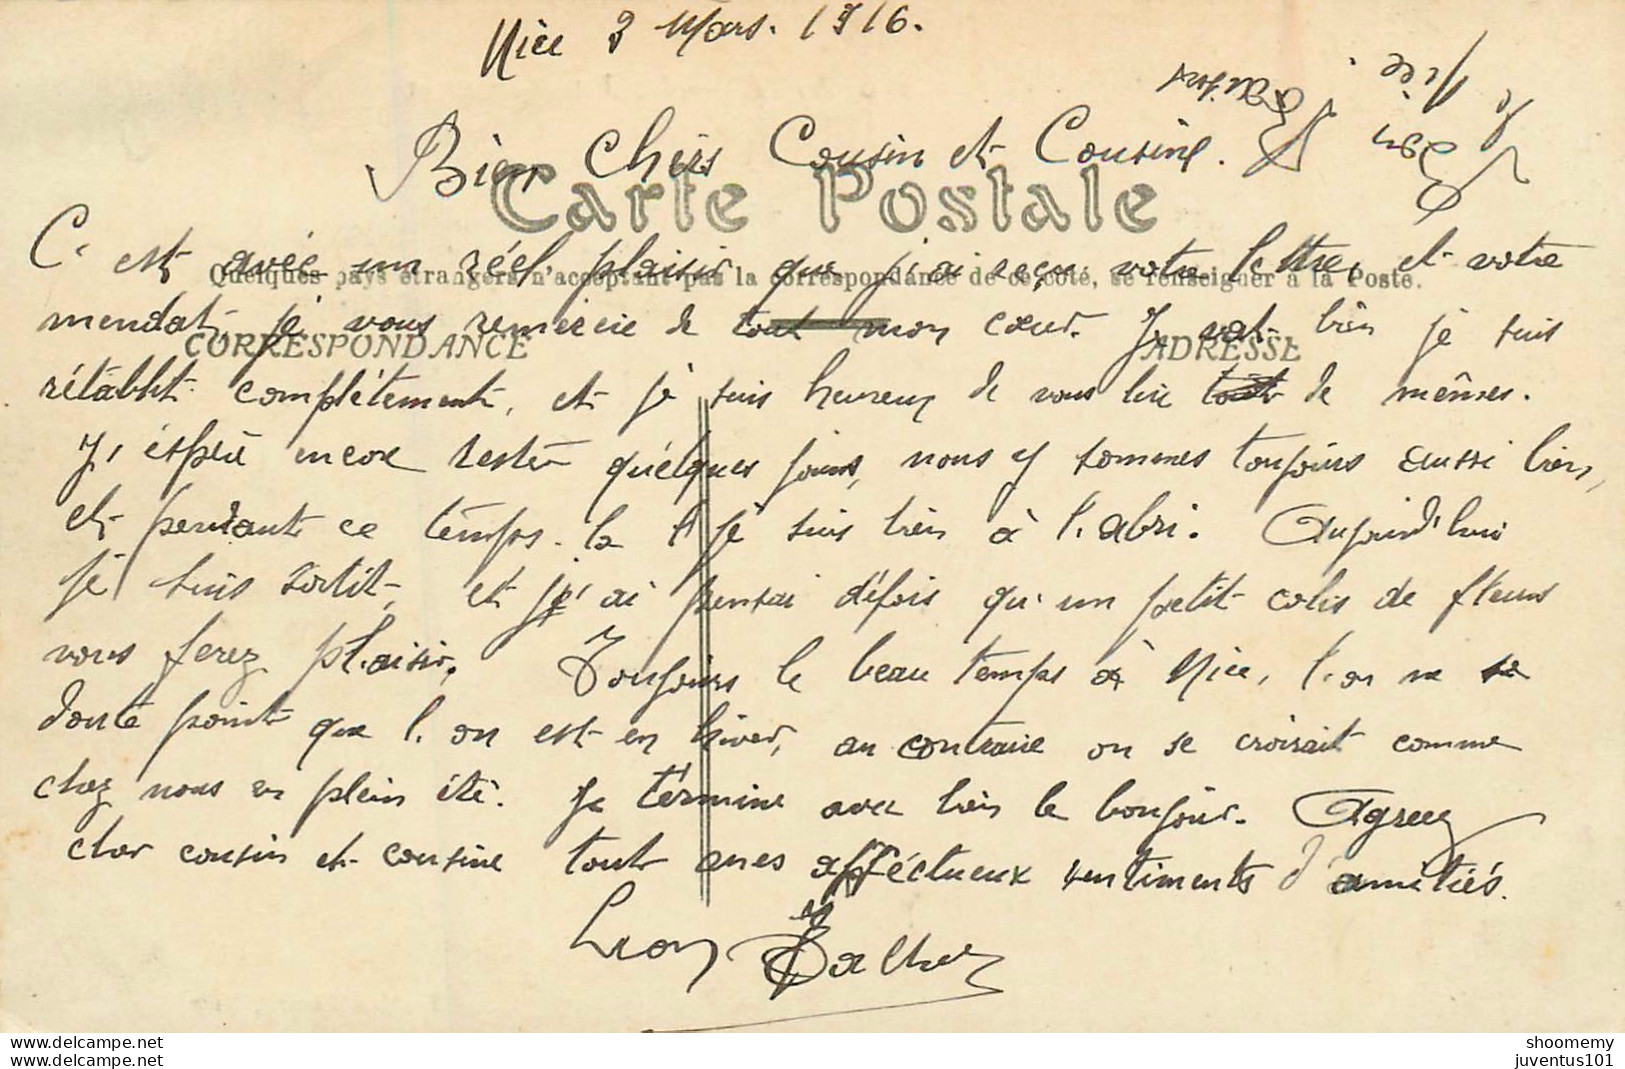 Nice 3 Mars. 1916.
Bien Chers Cousin et Cousine.
Carte Postale
C'est avec un réel plaisir que j'ai reçu votre lettre, et votre
Quelques pays étrangers n'acceptant pas la correspondance de ce côté, se renseigner à la Poste.
mendat, je vous remercie de tout mon cœur. Je vais bien je suis
CORRESPONDANCE
ADRESSE
rétablit complétement, et je suis heureux de vous lire de mêmes.
J'éspère encore rester quélques jours, nous y sommes toujours aussi bien,
et pendant ce temps-la je suis bien à l'abri. Aujourd'hui
je suis sortit, et j'ai pensai défois qu'un petit colis de fleurs
vous ferez plaisir. Toujours le beau temps à Nice, l'on ne se
doute point que l'on est en hiver, au contraire on se croirait comme
chez nous en plein été. Je términe avec bien le bonjour. Agreez
cher cousin et cousine tout mes afféctueux sentiments d'amitiés.
Léon
shoomemy
www.delcampe.net
juventus101
www.delcampe.net